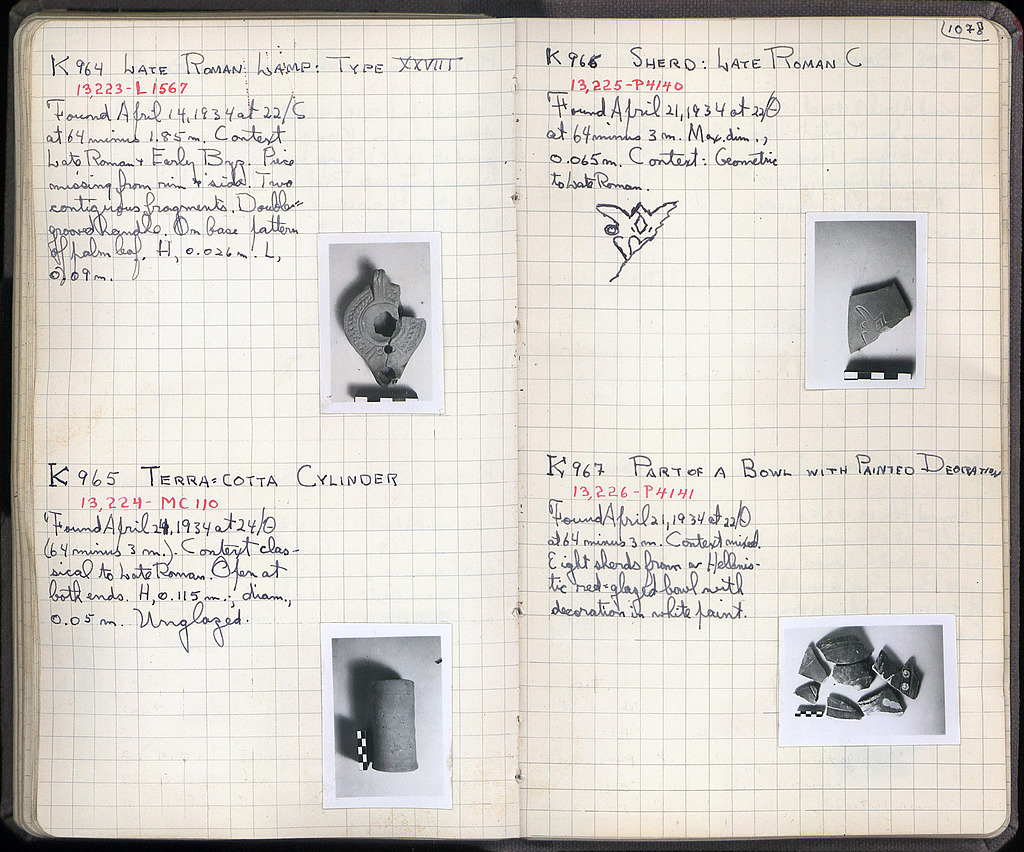 K 964 LATE ROMAN LAMP: TYPE XXVIII
13,223-L1567
Found April 14, 1934 at 22/
at 64 minus 1.85 m. Context
Late Roman + Early Byz. Piece
missing from rim + side. Two
contiguous fragments. Double=
grooved handle. On base pattern
of palm leaf. H, 0.026 m. L,
0.09 m.
K 965 TERRA=COTTA CYLINDER
13,224-MC110
Found April 21, 1934 at 24/Θ
(64 minus 3 m.). Context clas-
sical to Late Roman. Open at
both ends. H, 0.115 m.; diam.,
0.05 m. Unglazed.
1078
K 966 SHERD: LATE ROMAN C
13,225-P4140
Found April 21, 1934 at 22/Θ
at 64 minus 3 m. Max. dim.,
0.065 m. Context: Geometric
to Late Roman.
K 967 PART OF A BOWL WITH PAINTED DECORATION
13,226-P4141
Found April 21, 1934 at 22/Θ
at 64 minus 3 m. Context mixed.
Eight sherds from a Hellenis-
tic red=glazed bowl with
decoration in white paint.